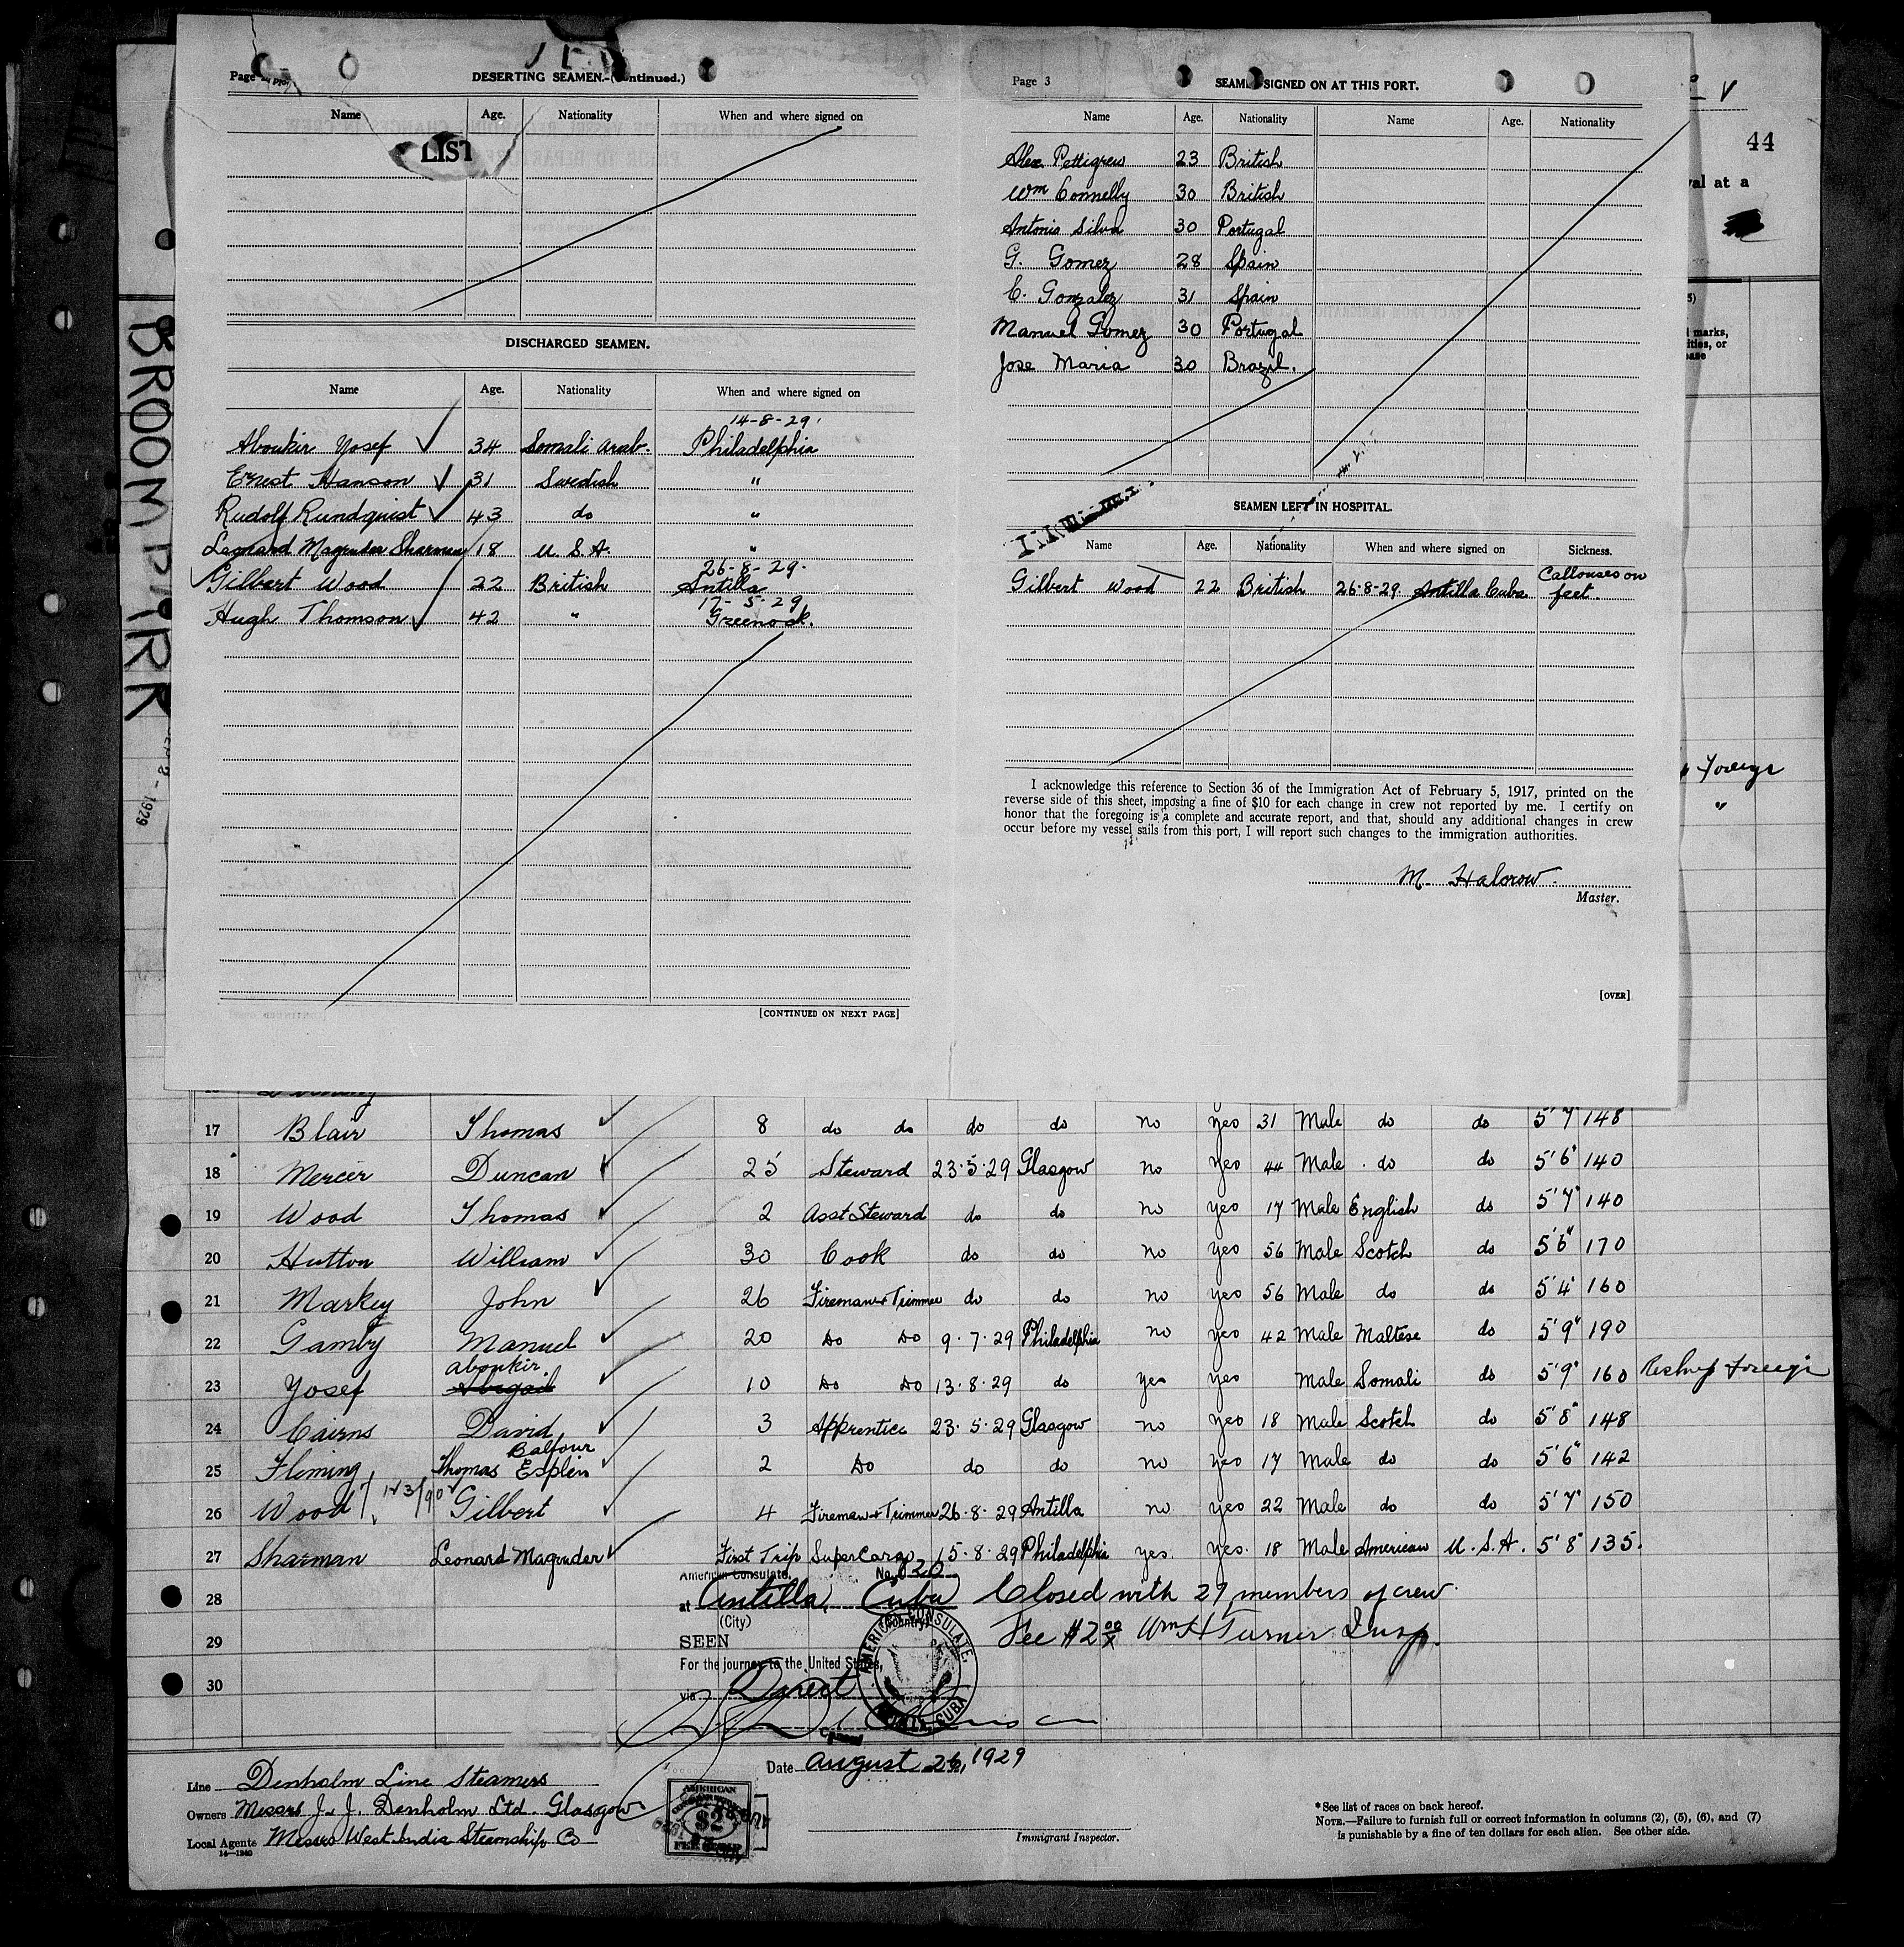 Page
DESERTING SEAMEN.-(Continued.)
Name Age. Nationality When and where signed on
LIST
DISCHARGED SEAMEN.
Name Age. Nationality When and where signed on
14-8-29.
Aboukir Yosef 34 Somali Arab. Philadelphia
Ernest Hanson 31 Swedish "
Rudolf Rundquist 43 do "
Leonard Magruder Sharman 18 U.S.A. "
26-8-29.
Gilbert Wood 22 British Antilla
17-5-29
Hugh Thomson 42 " Greenock.
[CONTINUED ON NEXT PAGE]
Page 3
SEAMEN SIGNED ON AT THIS PORT.
Name Age. Nationality Name Age. Nationality
Alex Pettigrew 23 British
Wm Connelly 30 British
Antonio Silva 30 Portugal
G. Gomez 28 Spain
C. Gonzalez 31 Spain
Manuel Gomez 30 Portugal
Jose Maria 30 Brazil.
SEAMEN LEFT IN HOSPITAL.
Name Age. Nationality When and where signed on Sickness.
Gilbert Wood 22 British 26-8-29 Antilla Cuba Callouses on
feet.
I acknowledge this reference to Section 36 of the Immigration Act of February 5, 1917, printed on the
reverse side of this sheet, imposing a fine of $10 for each change in crew not reported by me. I certify on
honor that the foregoing is a complete and accurate report, and that, should any additional changes in crew
occur before my vessel sails from this port, I will report such changes to the immigration authorities.
M. Halcrow.
Master.
[OVER]
44
val at a
marks,
ities, or
ease
Foreign
"
BROOMPARK
8 - 1929
17 Blair Thomas 8 do do do do no yes 31 Male do do 5'7" 148
18 Mercer Duncan 25 Steward 23.5.29 Glasgow no yes 44 Male do do 5'6" 140
19 Wood Thomas 2 Asst Steward do do no yes 17 Male English do 5'7" 140
20 Hutton William 30 Cook do do no yes 56 Male Scotch do 5'6" 170
21 Markey John 26 Fireman & Trimmer do do no yes 56 Male do do 5'4" 160
22 Gamby Manuel 20 Do Do 9.7.29 Philadelphia no yes 42 Male Maltese do 5'9" 190
Aboukir
23 Yosef Abigail 10 Do Do 13.8.29 do yes yes Male Somali do 5'9" 160 Reship Foreign
24 Cairns David 3 Apprentice 23.5.29 Glasgow no yes 18 Male Scotch do 5'8" 148
Balfour
25 Fleming Thomas Esplin 2 Do do do no yes 17 Male do do 5'6" 142
26 Wood Gilbert 4 Fireman & Trimmer 26.8.29 Antilla no yes 22 Male do do 5'7" 150
27 Sharman Leonard Magruder First Trip SuperCargo 15.8.29 Philadelphia yes. yes. 18 Male American U.S.A. 5'8" 135.
American Consulate, No. 020
28 at Antilla, Cuba Closed with 27 members of crew.
(City) (Country)
29 SEEN Fee $2 00/x Wm H Turner Insp.
For the journey to the United States,
30 via Direct
AMERICAN CONSULATE, ANTILLA, CUBA
Consul
Date August 26, 1929
Line Denholm Line Steamers
Owners Messrs J. J. Denholm Ltd. Glasgow
Local Agents Messrs West India Steamship Co
14—1240
AMERICAN
$2
FEE STAMP
Immigrant Inspector.
* See list of races on back hereof.
NOTE.—Failure to furnish full or correct information in columns (2), (5), (6), and (7)
is punishable by a fine of ten dollars for each alien. See other side.